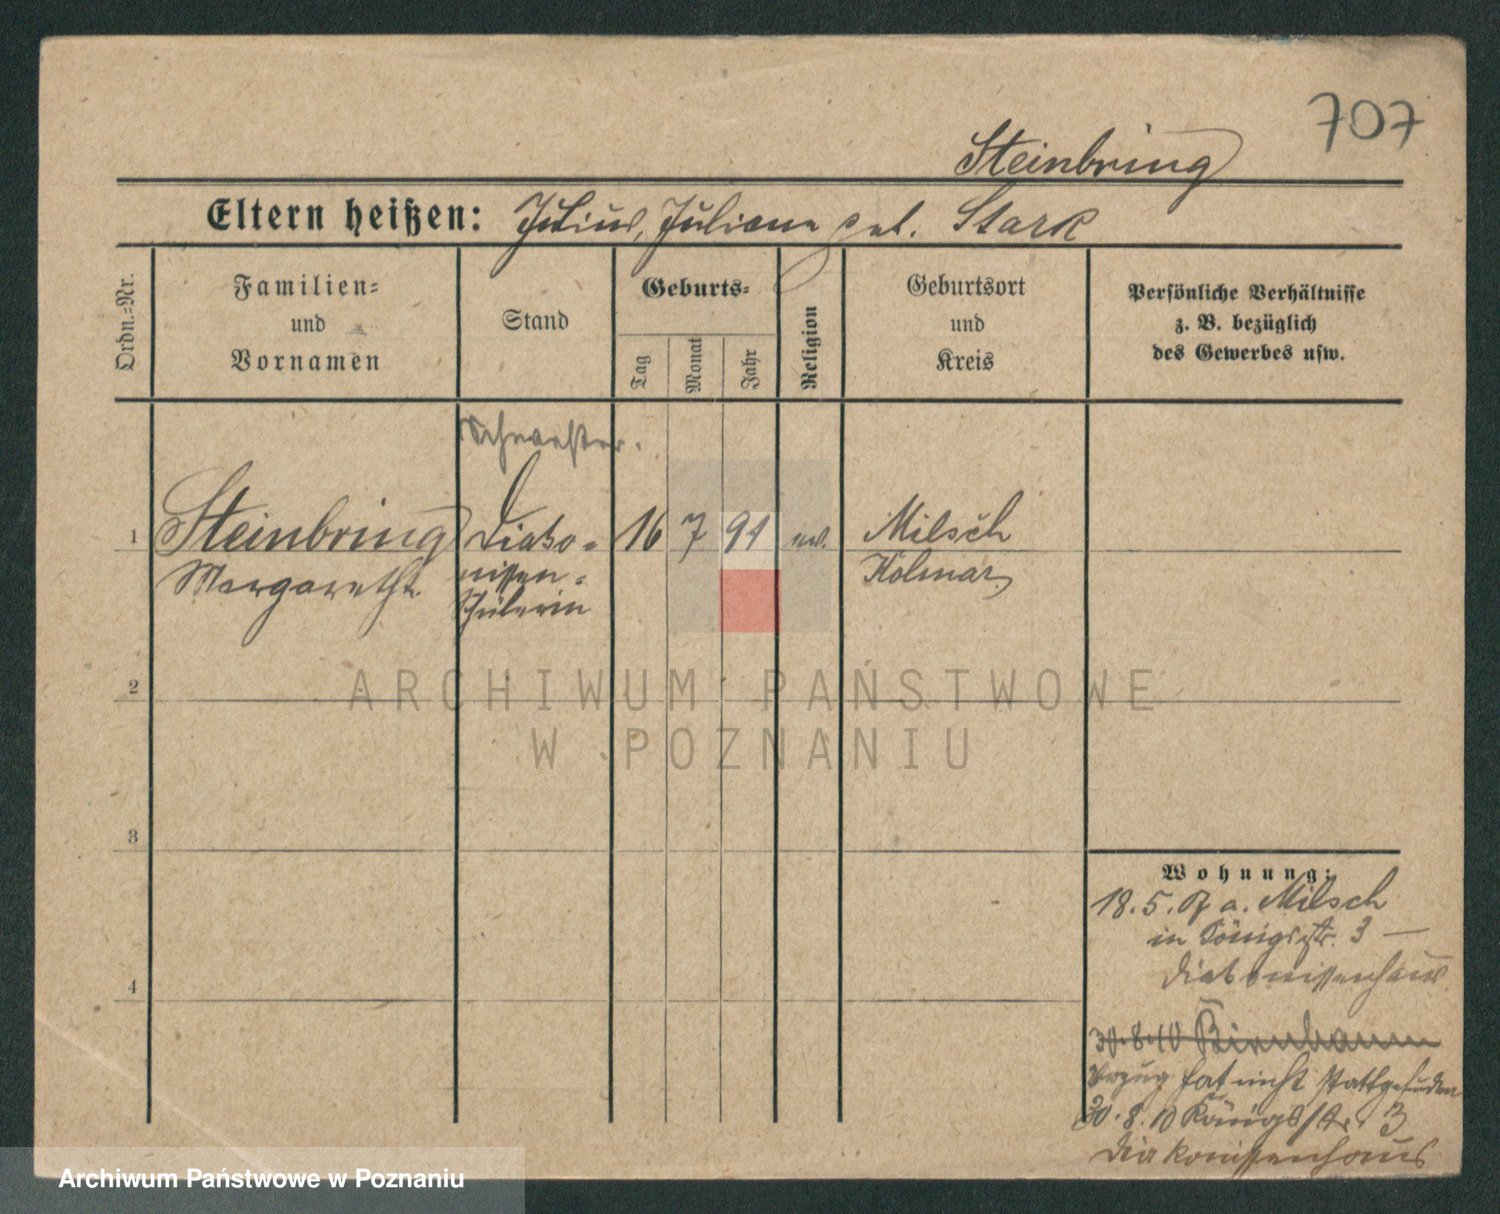 707
Steinbring
Eltern heißen: Julius, Juliane geb. Stark
Ordn.=Nr.
Familien=
und
Vornamen
Stand
Geburts=
Tag
Monat
Jahr
Religion
Geburtsort
und
Kreis
Persönliche Verhältnisse
z. B. bezüglich
des Gewerbes usw.
Schwester.
1 Steinbring Diako= 16 7 91 ev. Milsch
Margarethe nissen= Kolmar
Schülerin
2
ARCHIWUM PAŃSTWOWE
W POZNANIU
3
Wohnung:
18.5. a. Milsch
in Königsstr. 3 —
Diakonissenhaus
4
30.8.10 Birnbaum
Verzug hat nicht stattgefunden
30.8.10 Königsstr. 3
Diakonissenhaus
Archiwum Państwowe w Poznaniu